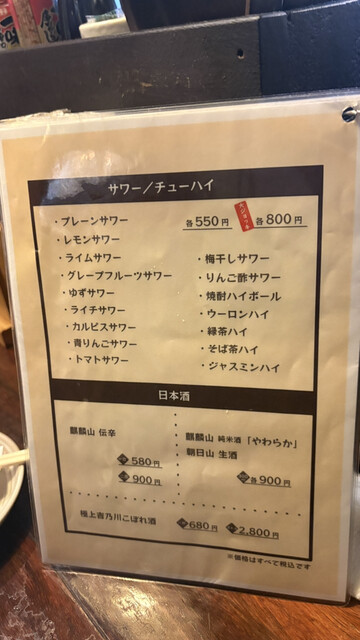 サワー／チューハイ
・プレーンサワー 各550円 各800円
・レモンサワー
・ライムサワー
・グレープフルーツサワー
・ゆずサワー
・ライチサワー
・カルピスサワー
・青りんごサワー
・トマトサワー
・梅干しサワー
・りんご酢サワー
・焼酎ハイボール
・ウーロンハイ
・緑茶ハイ
・そば茶ハイ
・ジャスミンハイ
日本酒
麒麟山 伝辛
580円
900円
麒麟山 純米酒「やわらか」
朝日山 生酒
各900円
極上吉乃川こぼれ酒 680円 2,800円
※価格はすべて税込です